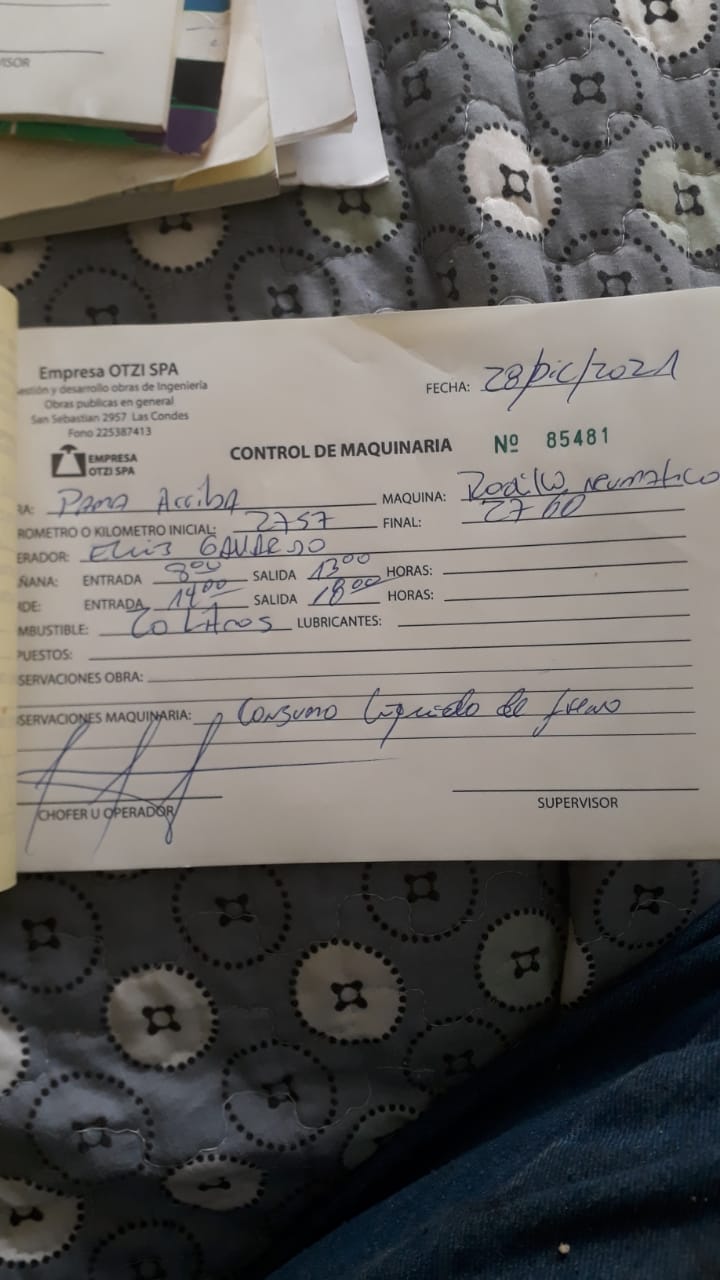 ISOR
Empresa OTZI SPA
estión y desarrollo obras de Ingeniería
Obras publicas en general
San Sebastian 2957 Las Condes
Fono 225387413
EMPRESA
OTZI SPA
FECHA: 28/Dic/2021
CONTROL DE MAQUINARIA Nº 85481
RA: Pama Arriba MAQUINA: Rodillo neumatico
ROMETRO O KILOMETRO INICIAL: 2757 FINAL: 2760
ERADOR: Elis GAVARDO
ÑANA: ENTRADA 8:00 SALIDA 13:00 HORAS:
DE: ENTRADA 14:00 SALIDA 18:00 HORAS:
MBUSTIBLE: Litros LUBRICANTES:
PUESTOS:
SERVACIONES OBRA:
SERVACIONES MAQUINARIA: Consumo liquido de freno
CHOFER U OPERADOR
SUPERVISOR